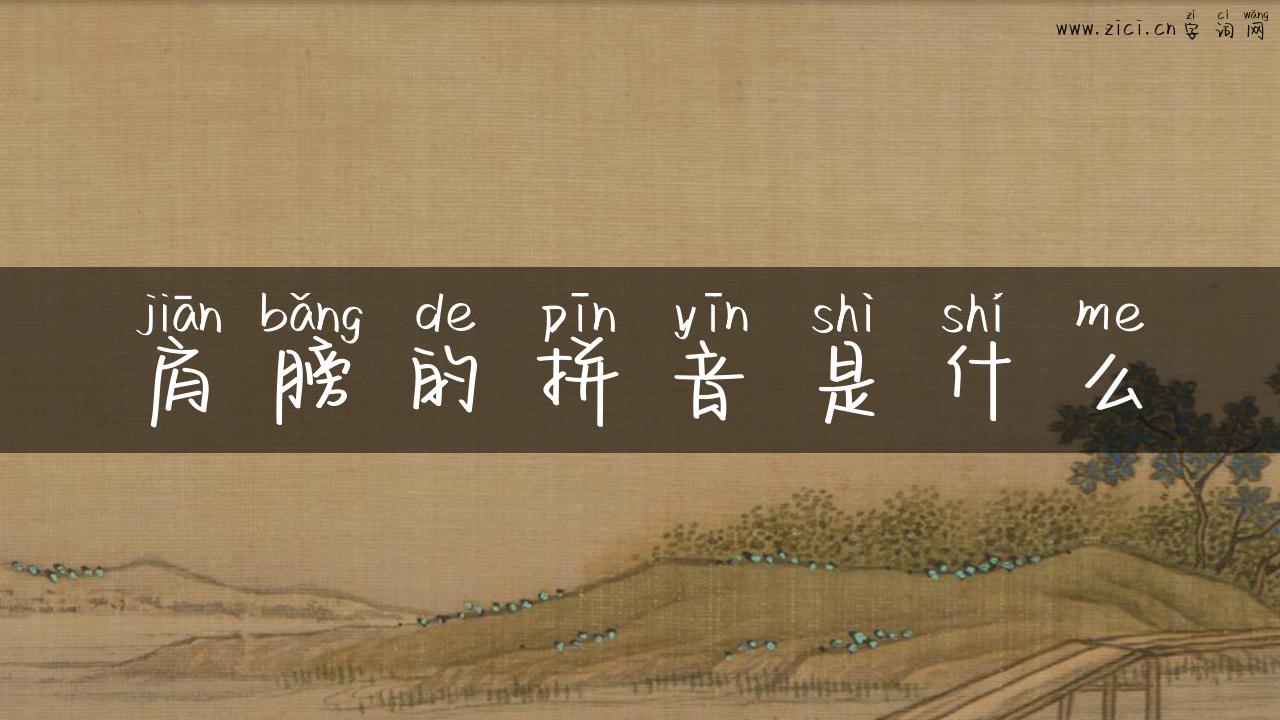 zì cí wǎng
www.zici.cn字词网
jiān bǎng de pīn yīn shì shí me
肩膀的拼音是什么